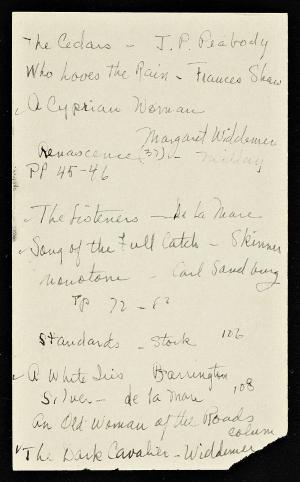 The Cedars - J. P. Peabody
Who Loves the Rain - Frances Shaw
✓ A Cyprian Woman
Margaret Widdemer
Renascence (37) - Millay
PP 45-46
✓ The Listeners - de La Mare
✓ Song of the Full Catch - Skinner
monotone - Carl Sandburg
PP 72 -
Standards - Stork 106
✓ A White Iris Barrington
Silver - de la Mare 108
An Old Woman of the Roads
colum
✓ The Dark Cavalier - Widdemer